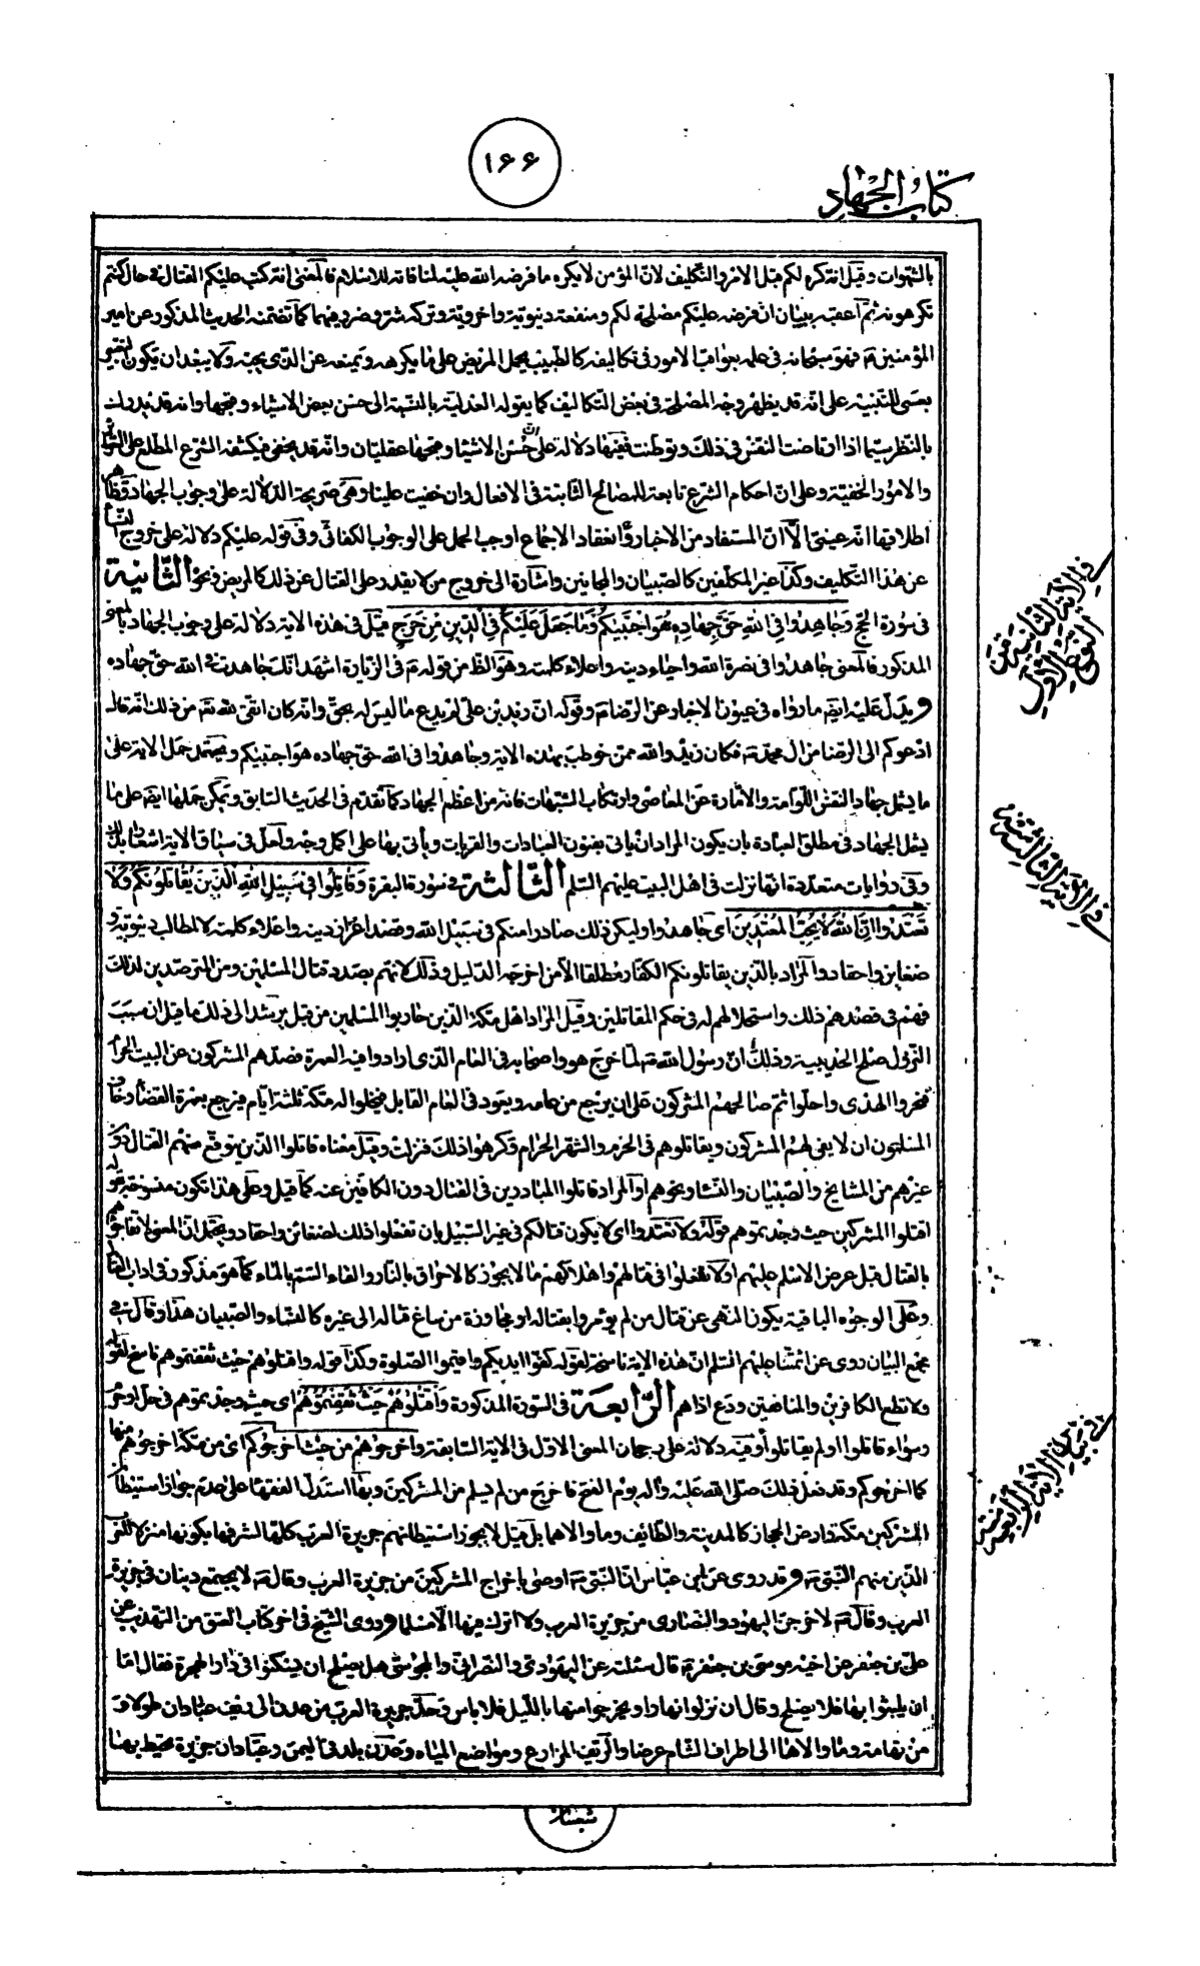 ١٦٦
كتاب الجهاد
بالشهوات وقيل انه كره لكم قبل الامر والتكليف لان المؤمن لا يكره ما فرضه الله عليه لمنافاته للاسلام فالمعنى انه كتب عليكم القتال في حال كنتم
تكرهونه ثم اعقبه ببيان ان فرضه عليكم مصلحة لكم ومنفعة دنيوية واخروية وتركه شر وضرر فيهما كما تضمنه الحديث المذكور عن امير
المؤمنين ع فهو سبحانه في علمه بعواقب الامور في تكاليفه كالطبيب يحمل المريض على ما يكرهه ويمنعه عن الذي يحبه ولا يبعد ان يكون التعبير
بعسى للتنبيه على انه قد يظهر وجه المصلحة في بعض التكاليف كما يقوله العدلية بالنسبة الى حسن بعض الاشياء وقبحها وانه قد يدرك
بالنظر سيما اذا ارتاضت النفس في ذلك وتوطنت ففيها دلالة على ان حسن الاشيا وقبحها عقليان وانه قد يخفى فيكشفه الشرع المطلع على السرائر
والامور الخفية وعلى ان احكام الشرع تابعة للمصالح الثابتة في الافعال وان خفيت علينا وهي صريحة الدلالة على وجوب الجهاد وظاهر
اطلاقها انه عيني الا ان المستفاد من الاخبار وانعقاد الاجماع اوجب الحمل على الوجوب الكفائي وفي قوله عليكم دلالة على خروج النساء
عن هذا التكليف وكذا غير المكلفين كالصبيان والمجانين واشارة الى خروج من لا يقدر على القتال عن ذلك كالمريض ونحو الثانية
في سورة الحج وجاهدوا في الله حق جهاده هو اجتبيكم وما جعل عليكم في الدين من حرج قيل في هذه الاية دلالة على وجوب الجهاد بالمعنى
المذكور فالمعنى جاهدوا في نصرة الله واحياء دينه واعلاء كلمته وهو الظ من قوله ع في الزيارة اشهد انك جاهدت في الله حق جهاده
ويدل عليه ايضا ما رواه في عيون الاخبار عن الرضا ع وقوله ان زيد بن علي لم يدع ما ليس له بحق وانه كان اتقى لله من ذلك انه قال
ادعوكم الى الرضا من ال محمد ع فكان زيد والله ممن خوطب بهذه الاية وجاهدوا في الله حق جهاده هو اجتبيكم ويحتمل حمل الاية على
ما يشمل جهاد النفس اللوامة والامارة عن المعاصي وارتكاب الشبهات فانه من اعظم الجهاد كما تقدم في الحديث السابق ويمكن حملها ايضا على ما
يشمل الجهاد في مطلق العبادة بان يكون المراد ان ياتي بفنون العبادات والقربات وياتي بها على اكمل وجه ولعل في سياق الاية اشعارا بذلك
وفي روايات متعددة انها نزلت في اهل البيت عليهم السلم الثالثة في سورة البقرة وقاتلوا في سبيل الله الذين يقاتلونكم ولا
تعتدوا ان الله لا يحب المعتدين اي جاهدوا وليكن ذلك صادرا منكم في سبيل الله وقصد اعزاز دينه واعلاء كلمته لا لمطالب دنيوية و
ضغاين واحقاد والمراد بالذين يقاتلونكم الكفار مطلقا الا من اخرجه الدليل وذلك لانهم بصدد قتال المسلمين ومن المترصدين لذلك
فهم في قصدهم ذلك واستحلالهم له في حكم المقاتلين وقيل المراد اهل مكة الذين حاربوا المسلمين من قبل يرشد الى ذلك ما قيل ان سبب
النزول صلح الحديبية وذلك ان رسول الله ص لما خرج هو واصحابه في العام الذي ارادوا فيه العمرة فصدهم المشركون عن البيت الحرام
فنحروا الهدى واحلوا ثم صالحهم المشركون على ان يرجع من عامه ويعود في العام القابل فيخلوا له مكة ثلثة ايام فيرجع بعمرة القضاء وخاف
المسلمون ان لا يفي لهم المشركون ويقاتلوهم في الحرم والشهر الحرام وكرهوا ذلك فنزلت وقيل معناه قاتلوا الذين يتوقع منهم القتال دون
غيرهم من المشايخ والصبيان والنساء ونحوهم او المراد قاتلوا المبادرين في القتال دون الكافين عنه كما قيل وعلى هذا تكون منسوخة بقوله
اقتلوا المشركين حيث وجدتموهم قوله ولا تعتدوا اي لا يكون قتالكم في غير السبيل بان تفعلوا ذلك لضغائن واحقاد ويحتمل ان المعنى لا تفاجؤهم
بالقتال قبل عرض الاسلم عليهم او لا تفعلوا في قتالهم واهلاكهم ما لا يجوز كالاحراق بالنار والقاء السم بالماء كما هو مذكور في اداب القتال
وعلى الوجوه الباقية يكون النهي عن قتال من لم يؤمروا بقتاله او مجاوزة من ساغ قتاله الى غيره كالنساء والصبيان هذا وقال في
مجمع البيان روى عن ائمتنا عليهم السلم ان هذه الاية ناسخة لقوله كفوا ايديكم واقيموا الصلوة وكذا قوله واقتلوهم حيث ثقفتموهم ناسخ لقوله
ولا تطع الكافرين والمنافقين ودع اذاهم الرابعة في السورة المذكورة واقتلوهم حيث ثقفتموهم اي حيث وجدتموهم في حل او حرم
وسواء قاتلوا او لم يقاتلوا وفيه دلالة على رجحان المعنى الاول في الاية السابقة واخرجوهم من حيث اخرجوكم اي من مكة اخرجوهم منها
كما اخرجوكم وقد فعل ذلك صلى الله عليه واله يوم الفتح فاخرج من لم يسلم من المشركين وبها استدل الفقهاء على عدم جواز استيطان
المشركين مكة وارض الحجاز كالمدينة والطائف وما والاها بل قيل لا يجوز استيطانهم جزيرة العرب كلها لشرفها بكونها منزلا للعرب
الذين منهم النبي ص وقد روى عن ابن عباس ان النبي ص اوصى باخراج المشركين من جزيرة العرب وقال ص لا يجتمع دينان في جزيرة
العرب وقال ص لاخرجن اليهود والنصارى من جزيرة العرب ولا اترك فيها الا مسلما وروى الشيخ في اخر كتاب العتق من التهذيب عن
علي بن جعفر عن اخيه موسى بن جعفر ع قال سئلته عن اليهودي والنصراني والمجوسي هل يصلح ان يسكنوا في دار الهجرة فقال اما
ان يلبثوا بها فلا يصلح وقال ان نزلوا نهارا ويخرجوا منها بالليل فلا باس وحد جزيرة العرب من عدن الى ريف عبادان طولا و
من تهامة وما والاها الى اطراف الشام عرضا والريف المزارع ومواضع المياه وعدن بلد في اليمن وعبادان جزيرة محيط بها
في الاية الثانية من النوع الاول
في الاية الثالثة منه
في بيان الاية الرابعة منه
شعبتا